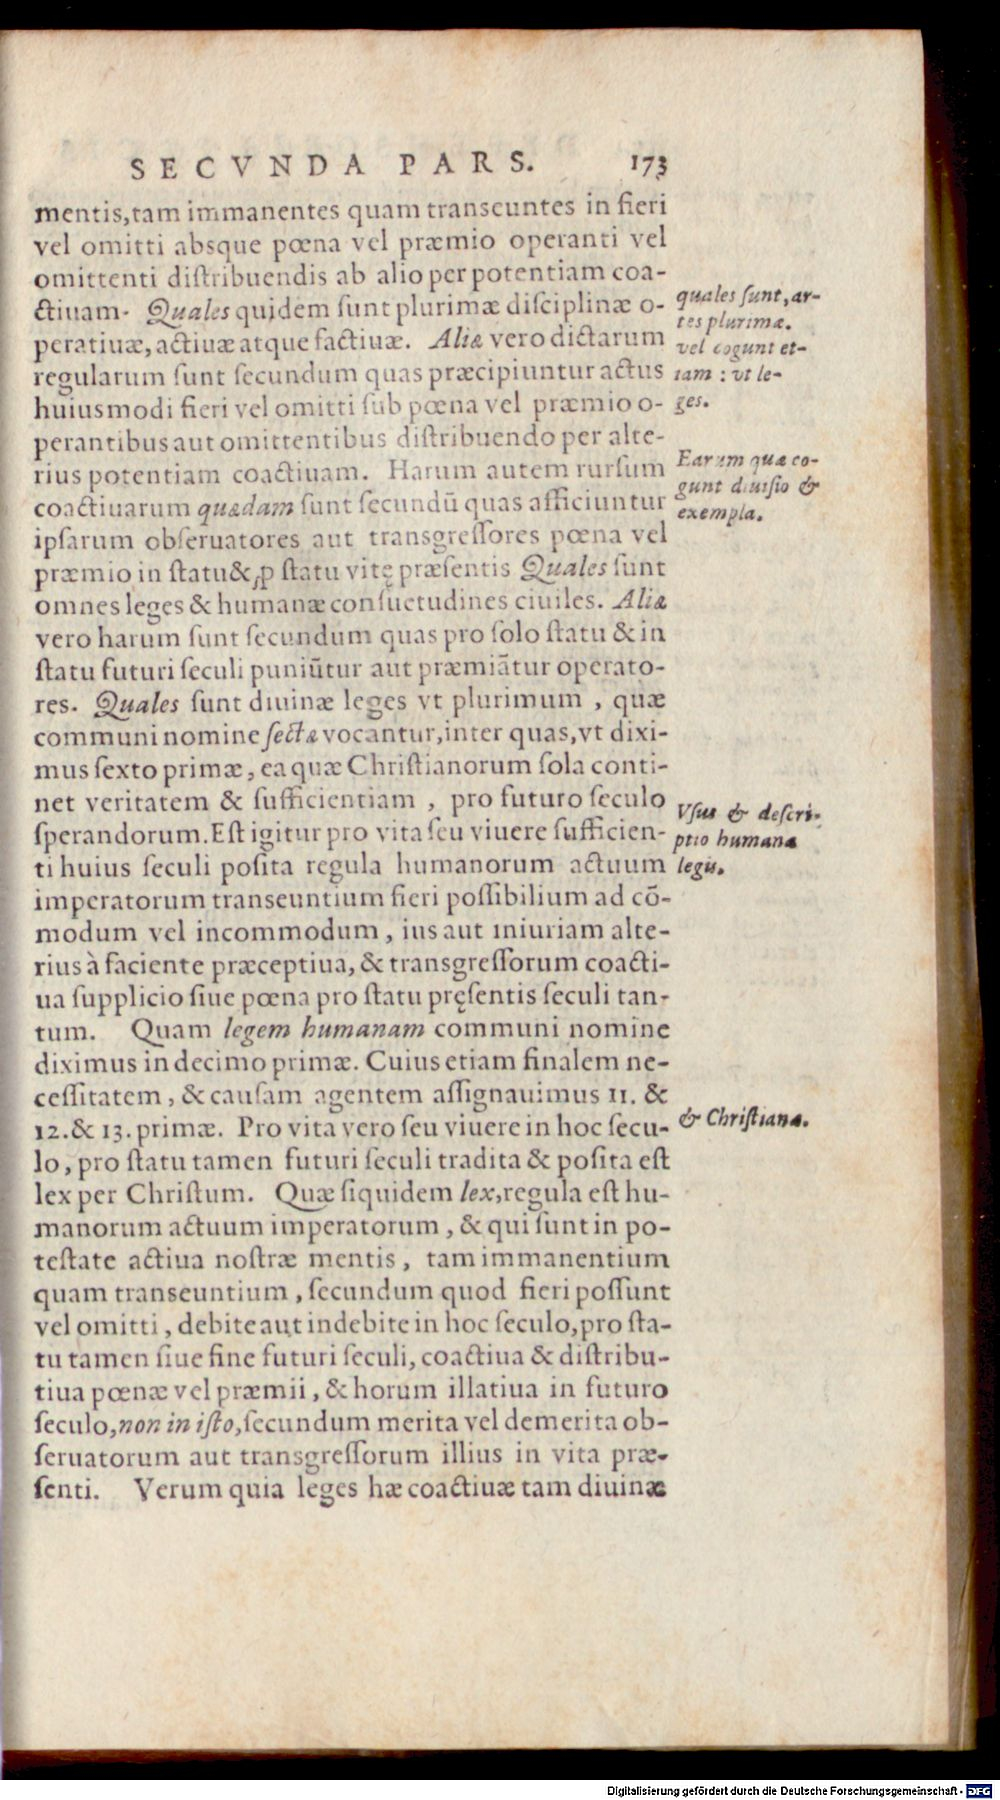 SECVNDA PARS. 173
mentis,tam immanentes quam transeuntes in fieri
vel omitti absque pœna vel præmio operanti vel
omittenti distribuendis ab alio per potentiam coa-
ctiuam. Quales quidem sunt plurimæ disciplinæ o-
peratiuæ, actiuæ atque factiuæ. Aliæ vero dictarum
regularum sunt secundum quas præcipiuntur actus
huiusmodi fieri vel omitti sub pœna vel præmio o-
perantibus aut omittentibus distribuendo per alte-
rius potentiam coactiuam. Harum autem rursum
coactiuarum quædam sunt secundū quas afficiuntur
ipsarum obseruatores aut transgressores pœna vel
præmio in statu & ꝓ statu vitę præsentis Quales sunt
omnes leges & humanæ consuetudines ciuiles. Aliæ
vero harum sunt secundum quas pro solo statu & in
statu futuri seculi puniūtur aut præmiātur operato-
res. Quales sunt diuinæ leges vt plurimum , quæ
communi nomine sectæ vocantur, inter quas, vt dixi-
mus sexto primæ, ea quæ Christianorum sola conti-
net veritatem & sufficientiam , pro futuro seculo
sperandorum. Est igitur pro vita seu viuere sufficien-
ti huius seculi posita regula humanorum actuum
imperatorum transeuntium fieri possibilium ad cō-
modum vel incommodum , ius aut iniuriam alte-
rius à faciente præceptiua, & transgressorum coacti-
ua supplicio siue pœna pro statu pręsentis seculi tan-
tum. Quam legem humanam communi nomine
diximus in decimo primæ. Cuius etiam finalem ne-
cessitatem , & causam agentem assignauimus 11. &
12. & 13. primæ. Pro vita vero seu viuere in hoc secu-
lo, pro statu tamen futuri seculi tradita & posita est
lex per Christum. Quæ siquidem lex, regula est hu-
manorum actuum imperatorum , & qui sunt in po-
testate actiua nostræ mentis , tam immanentium
quam transeuntium , secundum quod fieri possunt
vel omitti , debite aut indebite in hoc seculo, pro sta-
tu tamen siue fine futuri seculi, coactiua & distribu-
tiua pœnæ vel præmii , & horum illatiua in futuro
seculo, non in isto, secundum merita vel demerita ob-
seruatorum aut transgressorum illius in vita præ-
senti. Verum quia leges hæ coactiuæ tam diuinæ
quales sunt, ar-
tes plurimæ.
vel cogunt et-
iam : vt le-
ges.
Earum quæ co-
gunt diuisio &
exempla.
Vsus & descri-
ptio humanæ
legis.
& Christianæ.
Digitalisierung gefördert durch die Deutsche Forschungsgemeinschaft - DFG